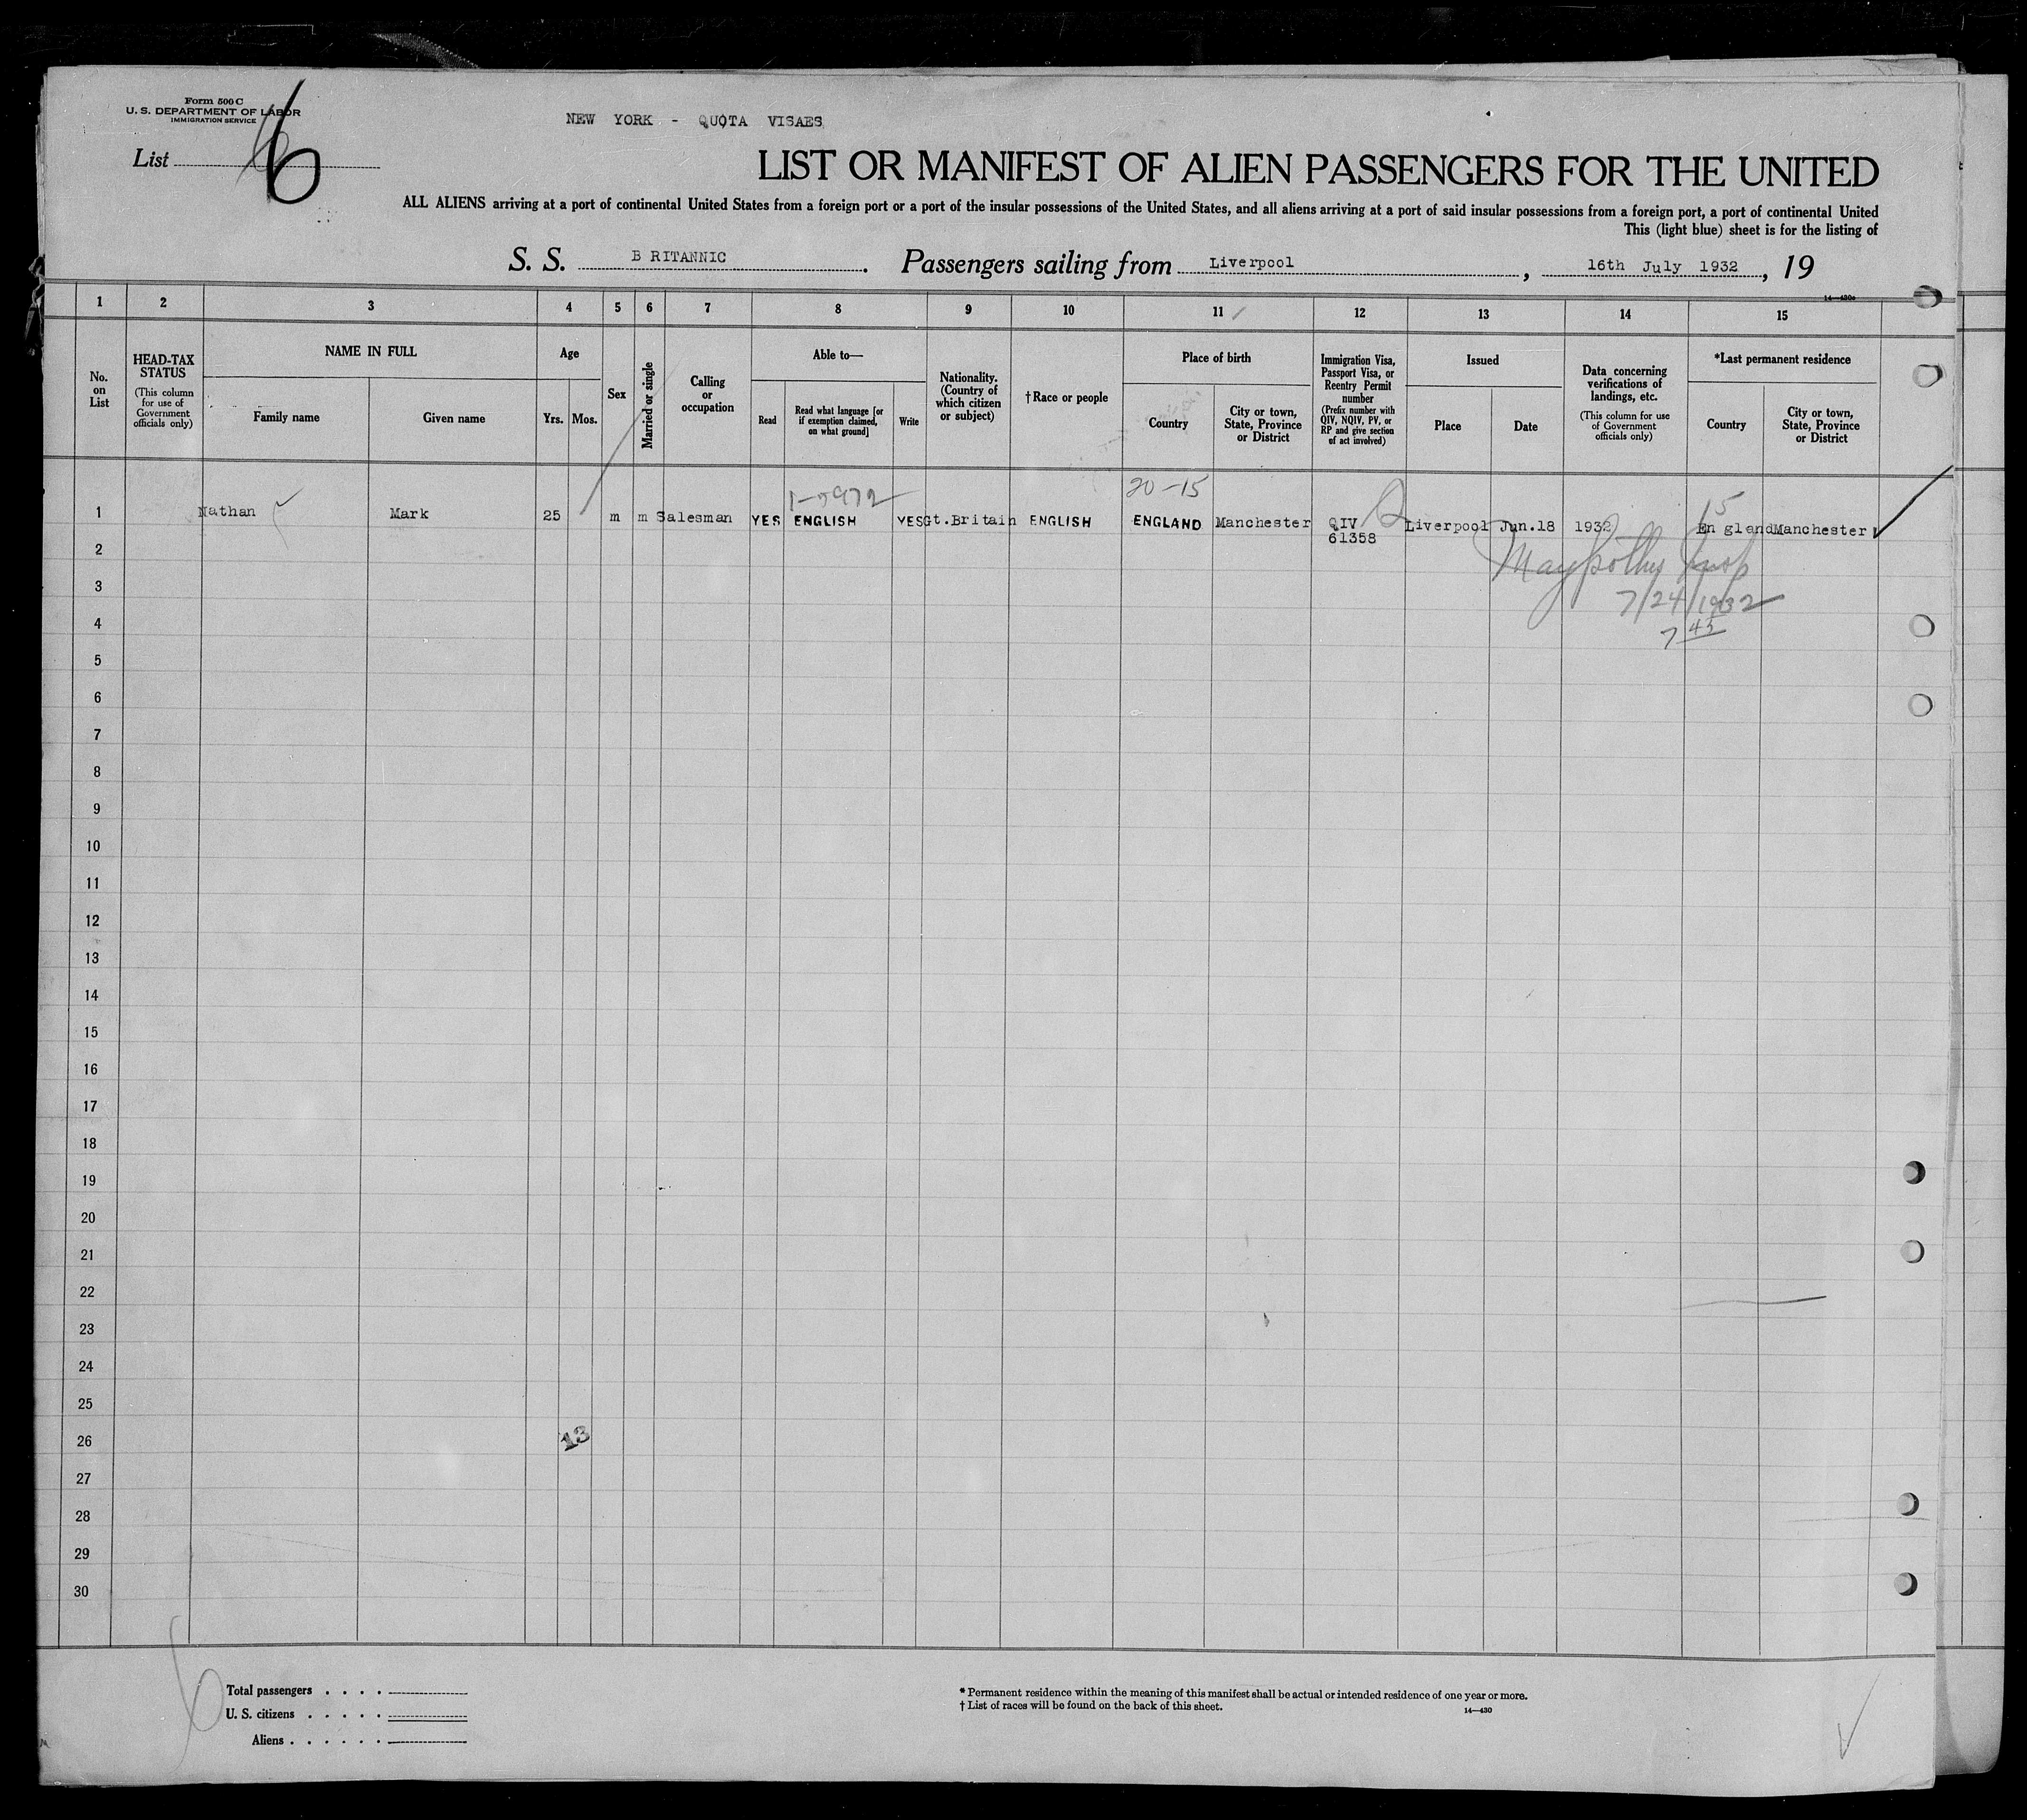 Form 500 C
U. S. DEPARTMENT OF LABOR
IMMIGRATION SERVICE
List 6
NEW YORK - QUOTA VISAES
LIST OR MANIFEST OF ALIEN PASSENGERS FOR THE UNITED
ALL ALIENS arriving at a port of continental United States from a foreign port or a port of the insular possessions of the United States, and all aliens arriving at a port of said insular possessions from a foreign port, a port of continental United
This (light blue) sheet is for the listing of
S. S. B RITANNIC. Passengers sailing from Liverpool, 16th July 1932, 19
14—430a
1 2 3 4 5 6 7 8 9 10 11 12 13 14 15
No. on List
HEAD-TAX STATUS
(This column for use of Government officials only)
NAME IN FULL
Family name
Given name
Age
Yrs. Mos.
Sex
Married or single
Calling or occupation
Able to—
Read
Read what language [or if exemption claimed, on what ground]
Write
Nationality. (Country of which citizen or subject)
†Race or people
Place of birth
Country
City or town, State, Province or District
Immigration Visa, Passport Visa, or Reentry Permit number
(Prefix number with QIV, NQIV, PV, or RP and give section of act involved)
Issued
Place
Date
Data concerning verifications of landings, etc.
(This column for use of Government officials only)
*Last permanent residence
Country
City or town, State, Province or District
20-15
15
1 Nathan Mark 25 m m Salesman YES ENGLISH YES Gt.Britain ENGLISH ENGLAND Manchester QIV Liverpool Jun.18 1932 En gland Manchester
61358
2
3
7/24/1932
4
7 45
5
6
7
8
9
10
11
12
13
14
15
16
17
18
19
20
21
22
23
24
25
26
13
27
28
29
30
6
Total passengers . . . .
U. S. citizens . . . . .
Aliens . . . . . .
* Permanent residence within the meaning of this manifest shall be actual or intended residence of one year or more.
† List of races will be found on the back of this sheet.
14—430